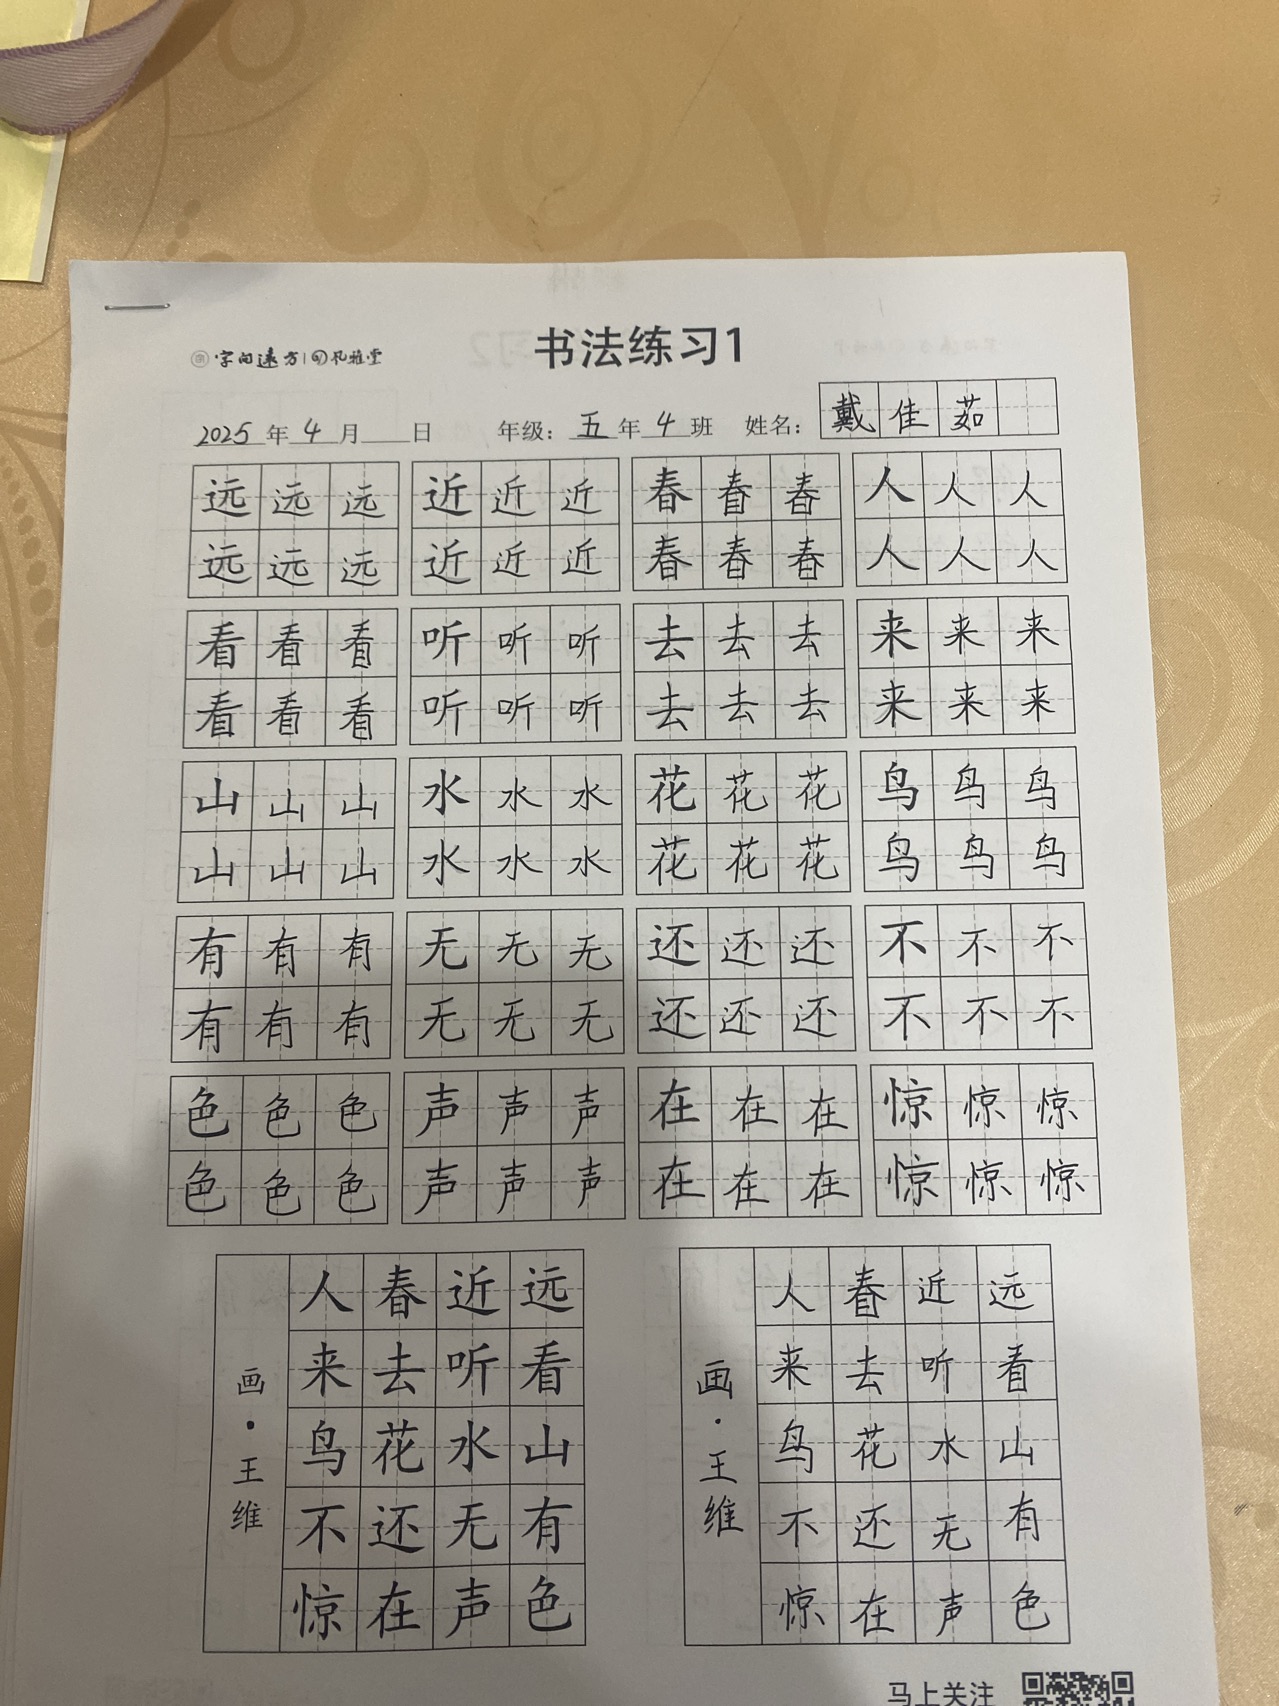 字向远方 孔雅堂
书法练习1
2025年4月 日 年级：五年4班 姓名：戴佳茹
远远远 近近近 春春春 人人人
远远远 近近近 春春春 人人人
看看看 听听听 去去去 来来来
看看看 听听听 去去去 来来来
山山山 水水水 花花花 鸟鸟鸟
山山山 水水水 花花花 鸟鸟鸟
有有有 无无无 还还还 不不不
有有有 无无无 还还还 不不不
色色色 声声声 在在在 惊惊惊
色色色 声声声 在在在 惊惊惊
远看山有色
近听水无声
春去花还在
人来鸟不惊
画·王维
远看山有色
近听水无声
春去花还在
人来鸟不惊
画·王维
马上关注